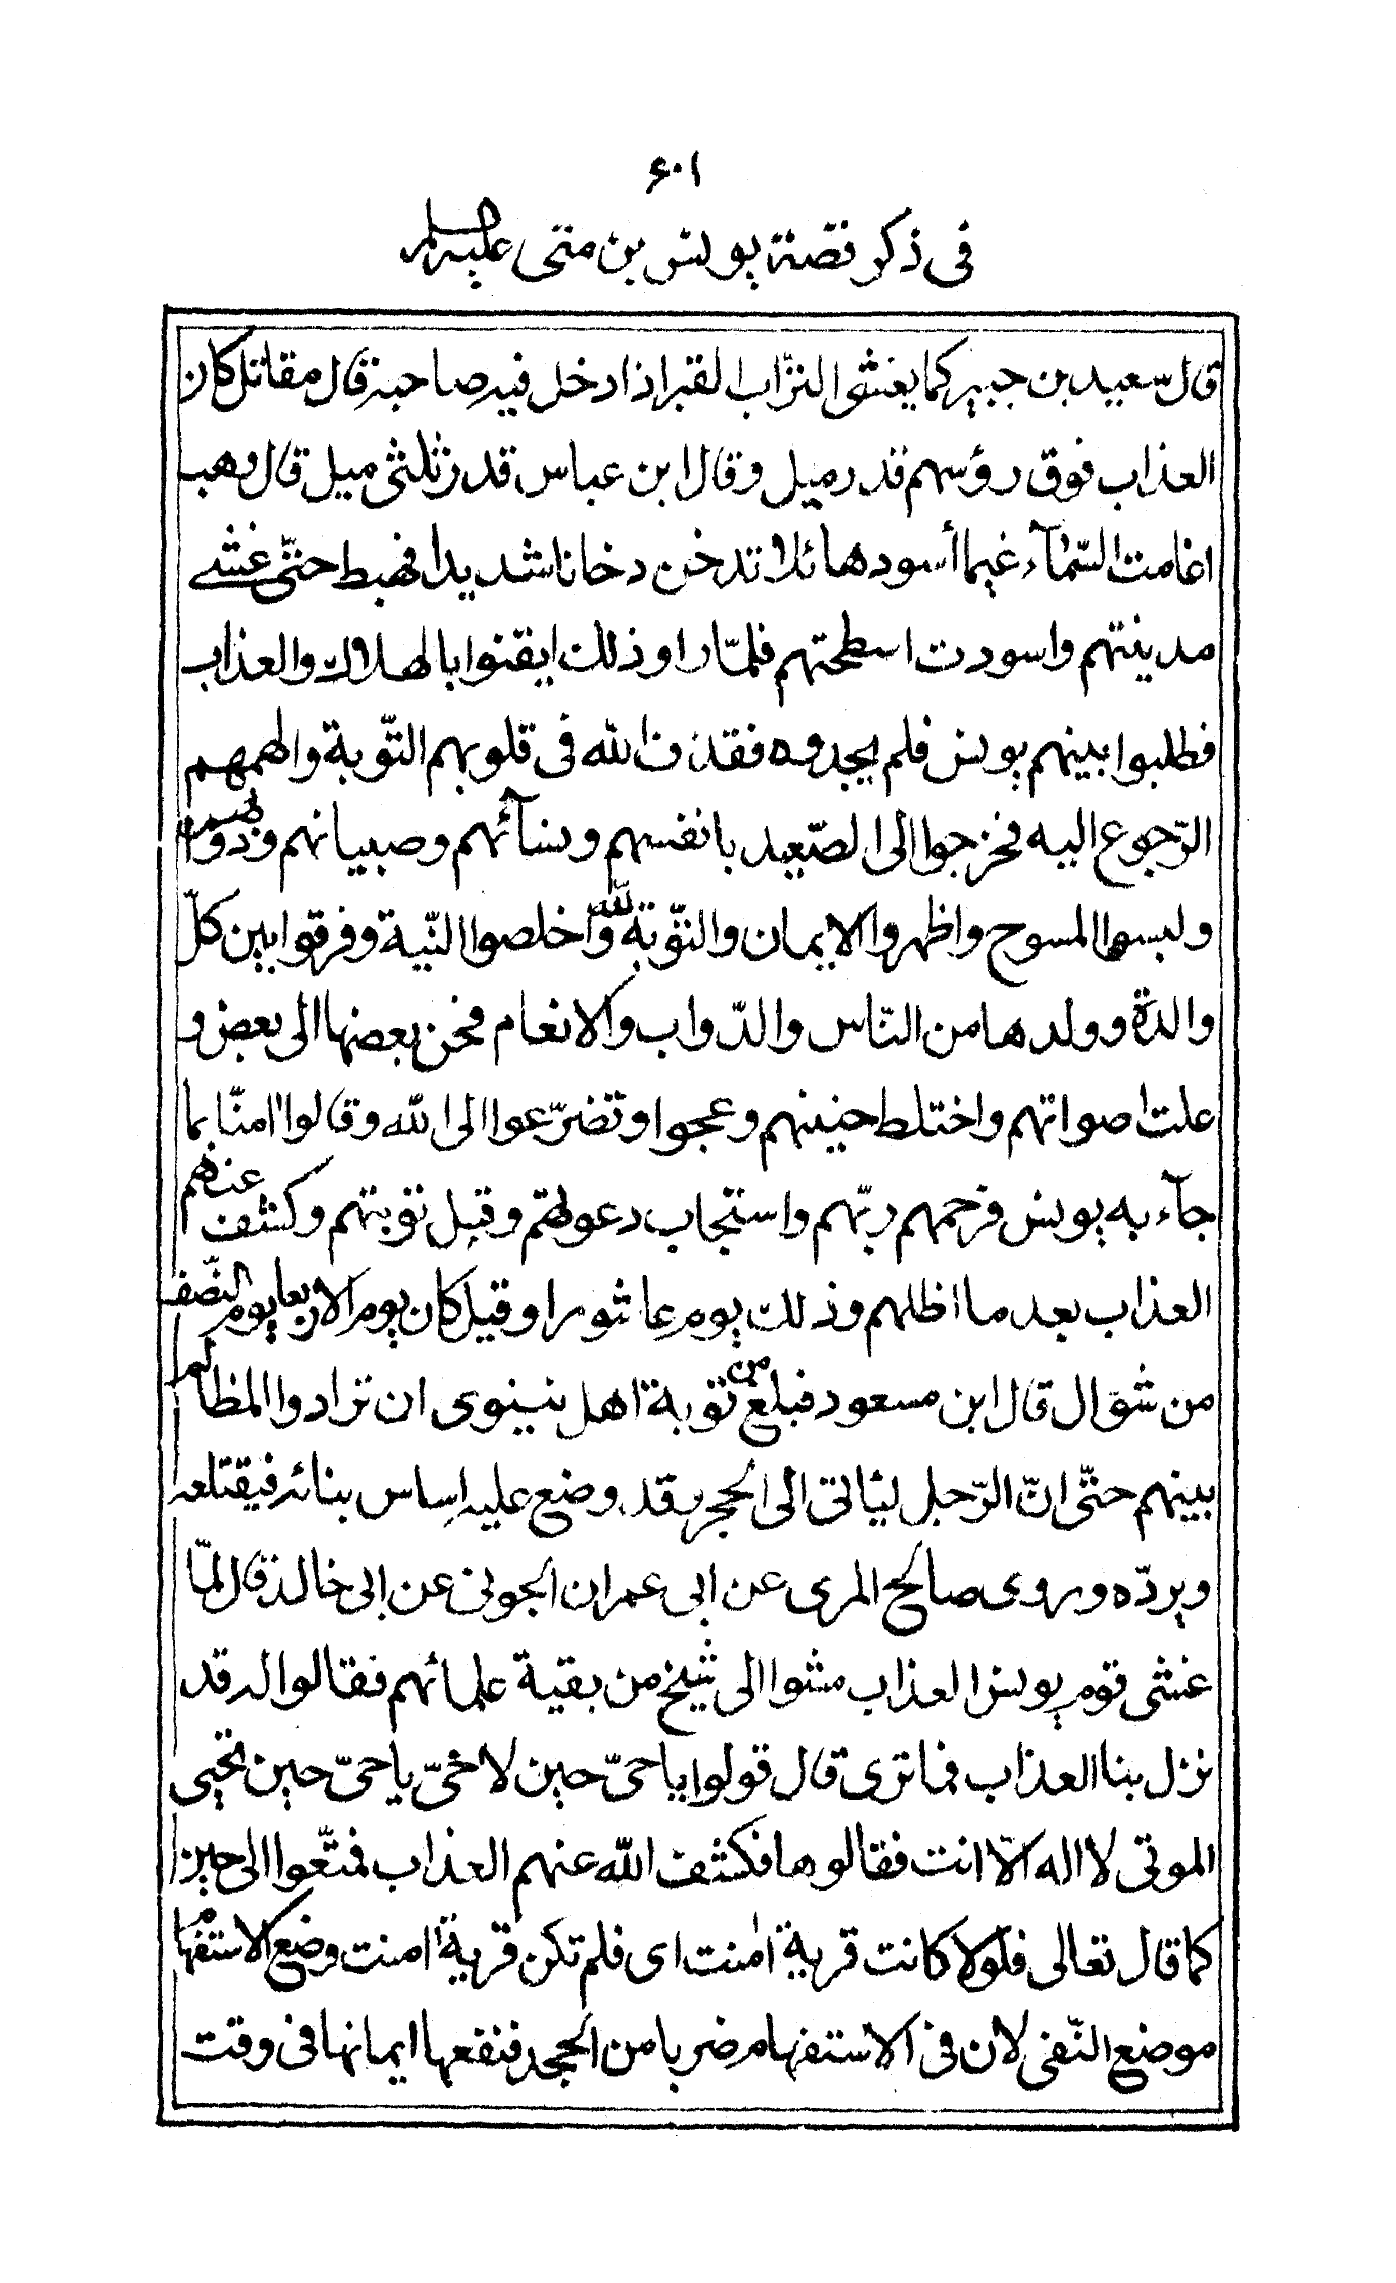 ۶۰۱
فی ذکر قصّة یونس بن متی علیه السلام
قال سّعید بن جبیر کما یغشی التّراب القبر اذا دخل فیه صاحبه قال مقاتل کان
العذاب فوق رؤسهم قدر میل وقال ابن عباس قدر ثلثی میل قال وهب
اغامت السّمآء غیما أسود هائلا تدخن دخانا شدیدا فهبط حتّی غشے
مدینتهم واسودت اسطحتهم فلمّا راو ذلك ایقنوا بالهلاك والعذاب
فطلبوا بینهم یونس فلم یجدوه فقذف الله فی قلوبهم التّوبة والهمهم
الرّجوع الیه فخرجوا الی الصّعید بانفسهم ونسآئهم وصبیانهم ودوابهم
ولبسوا المسوح واظهروا الایمان والتّوبة لله واخلصوا النّیة وفرقوا بین کلّ
والدة وولدها من النّاس والدّواب والانعام فحن بعضها الی بعض و
علت اصواتهم واختلط حنینهم وعجوا وتضرّعوا الی الله وقالوا امنّا بما
جآء به یونس فرحمهم ربّهم واستجاب دعوتهم وقبل توبتهم وکشف عنهم
العذاب بعد ما اظلهم وذلك یوم عاشورا وقیل کان یوم الاربعا یوم النّصف
من شوّال قال ابن مسعود فبلغ من توبة اهل نینوی ان ترادوا المظالم
بینهم حتّی انّ الرّجل لیأتی الی الحجر قد وضع علیه اساس بنائه فیقتلعه
ویردّه وروی صالح المری عن ابی عمران الجونی عن ابی خالد قال لمّا
غشی قوم یونس العذاب مشوا الی شیخ من بقیة علمائهم فقالوا له قد
نزل بنا العذاب فما تری قال قولوا یا حیّ حین لا حیّ یا حیّ حین تحیی
الموتی لا اله الّا انت فقالوها فکشف الله عنهم العذاب فمتّعوا الی حین
کما قال تعالی فلولا کانت قریة اٰمنت ای فلم تکن قریة امنت وضع الاستفهام
موضع النّفی لان فی الاستفهام ضربا من الجحد فنفعها ایمانها فی وقت